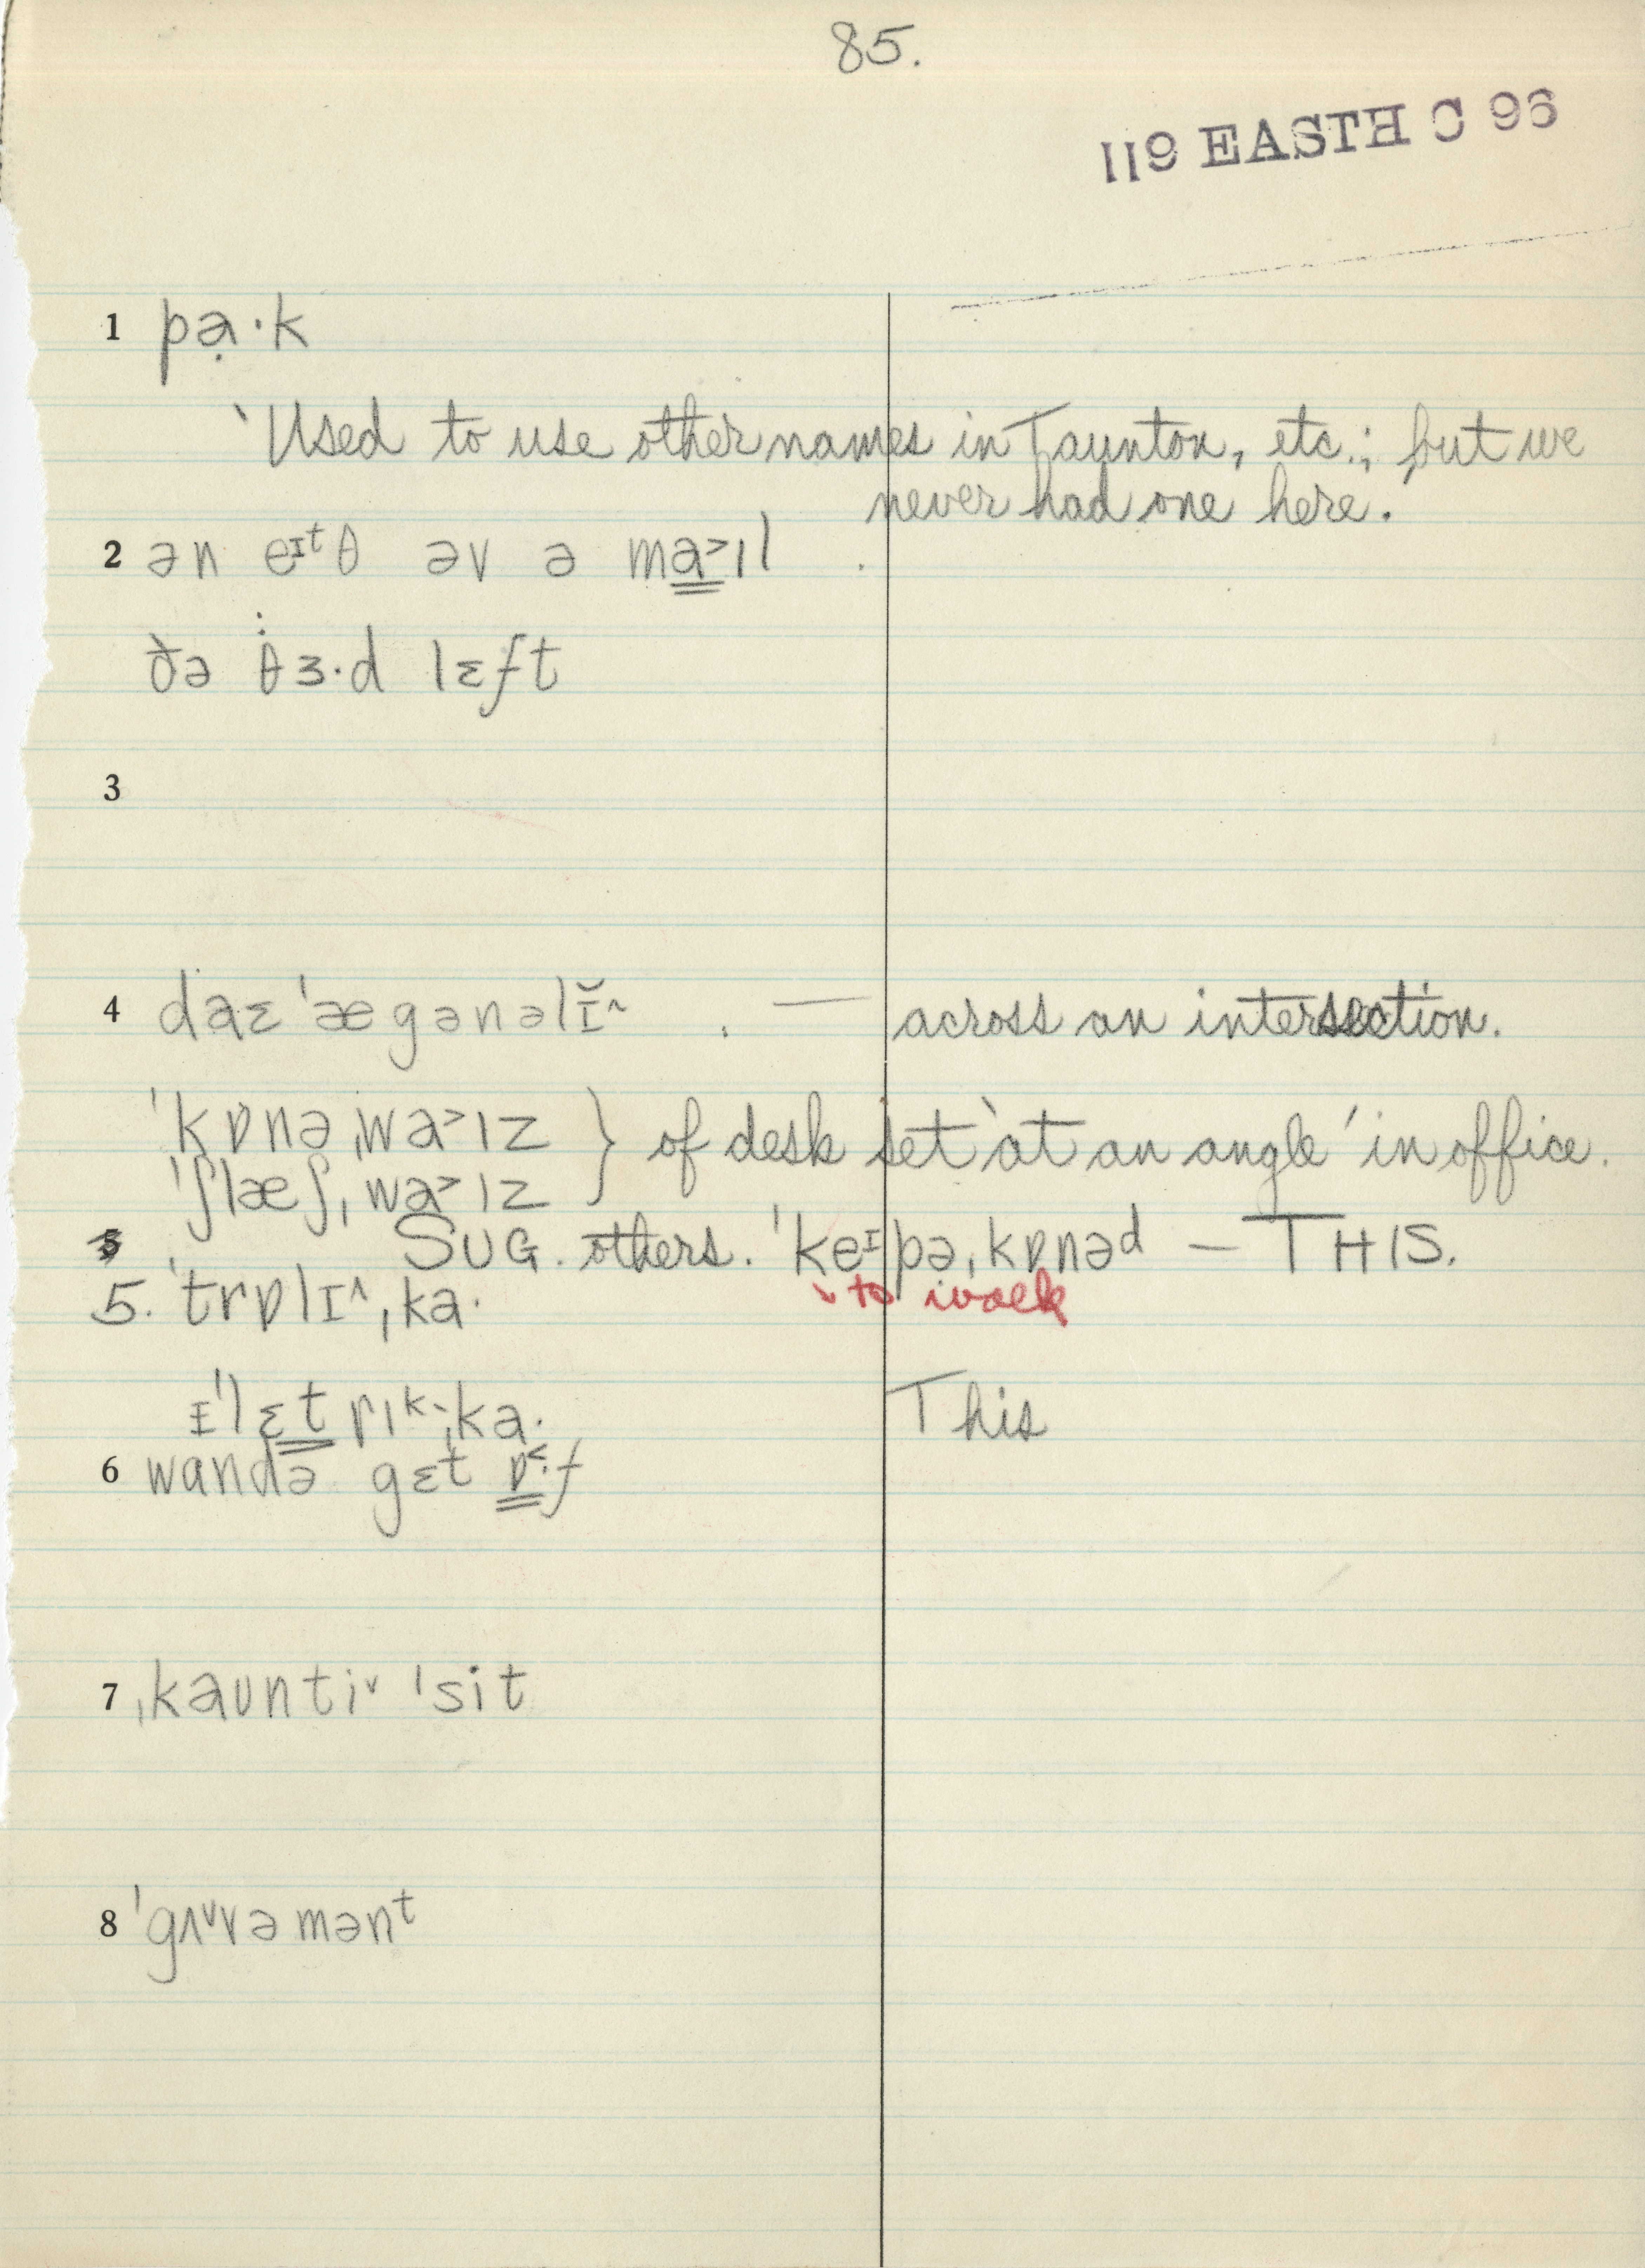 85.
119 EASTH C 96
1 pạ·k
‵Used to use other names in Taunton, etc.; but we
never had one here.
2 ən eɪᵗθ əv ə ma˃ɪl
ðə θɜ·d lɛft
3
4 daɛˈægənəlɪ̆^ — across an intersection.
ˈkɒnəˌwa˃ɪz } of desk set ‵at an angle′ in office.
ˈʃlæʃˌwa˃ɪz
SUG. others. ˈkeɪpəˌkɒnəᵈ — THIS.
5. ˈtrɒlɪ^ˌka· to walk
ɪˈlɛtrɪᵏˌka· This
6 wandə gɛt ɒ˂·f
7 ˌkaʊntiˇ ˈsit
8 ˈgʌˇvəmənᵗ